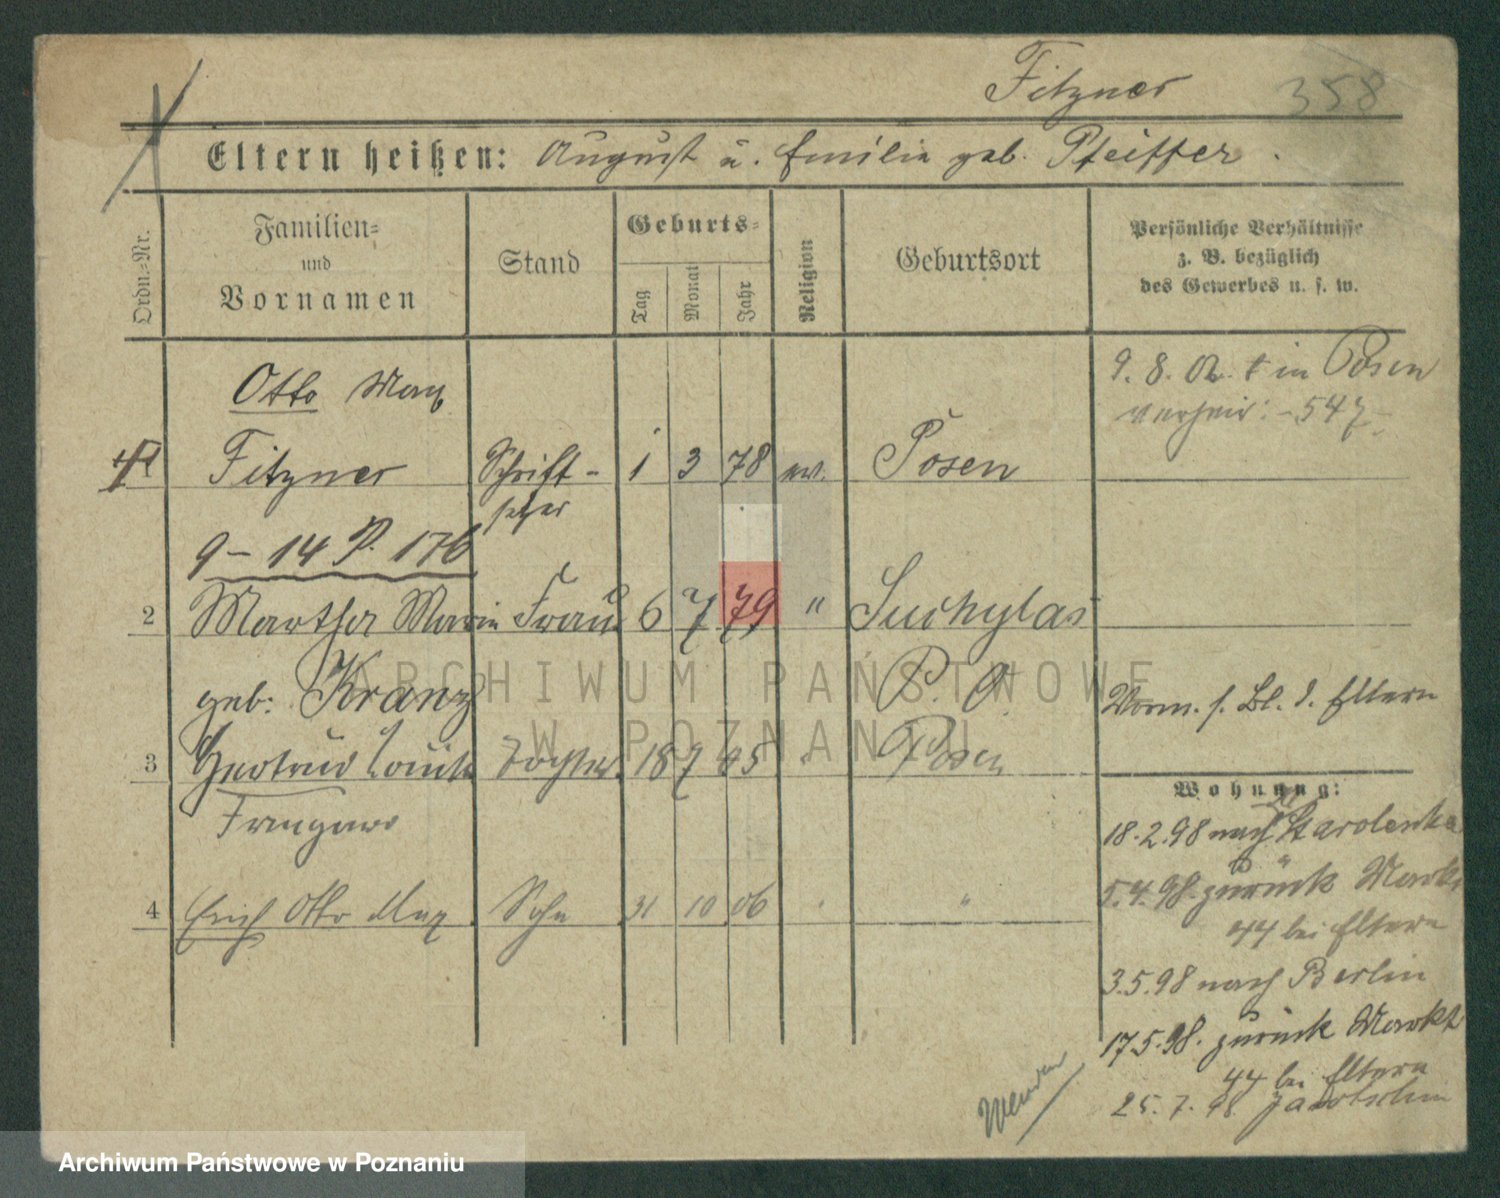 Fitzner 358
Eltern heißen: August u. Emilie geb. Pfeiffer.
Ordn=Nr.
Familien=
und
Vornamen
Stand
Geburts=
Tag
Monat
Jahr
Religion
Geburtsort
Persönliche Verhältnisse
z. B. bezüglich
des Gewerbes u. s. w.
Otto Max
Fitzner Schrift- 1 3 78 ev. Posen
setzer
9-14 P. 176
2 Martha Marie Frau 6 7 79 " Suchylas
geb: Kranz P. O.
3 Gertrud Louise Tochter 18 7 05 " Posen
Irmgard
4 Erich Otto Max Sohn 31 10 06 " "
9. 8. 02. † in Posen
verheir: - 547 -
Vorm. s. Bl. d. Eltern
Wohnung:
18.2.98 nach Starolenka
5.4.98. zurück Markt
44 bei Eltern
3.5.98 nach Berlin
17.5.98. zurück Markt
44 bei Eltern
25.7.98 Jarotschin
Wenden
ARCHIWUM PAŃSTWOWE
W POZNANIU
Archiwum Państwowe w Poznaniu